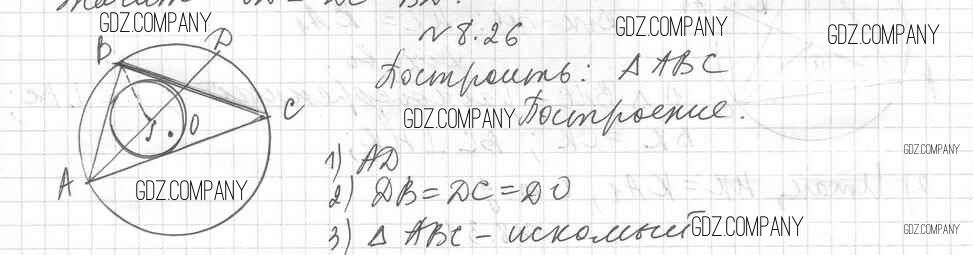 Значит
GDZ.COMPANY
GDZ.COMPANY
GDZ.COMPANY
№ 8.26
B
D
Построить: △ ABC
C
GDZ.COMPANY
Построение.
J
O
1) AD
GDZ.COMPANY
A
GDZ.COMPANY
2) DB = DC = DO
3) △ ABC - искомый
GDZ.COMPANY
GDZ.COMPANY